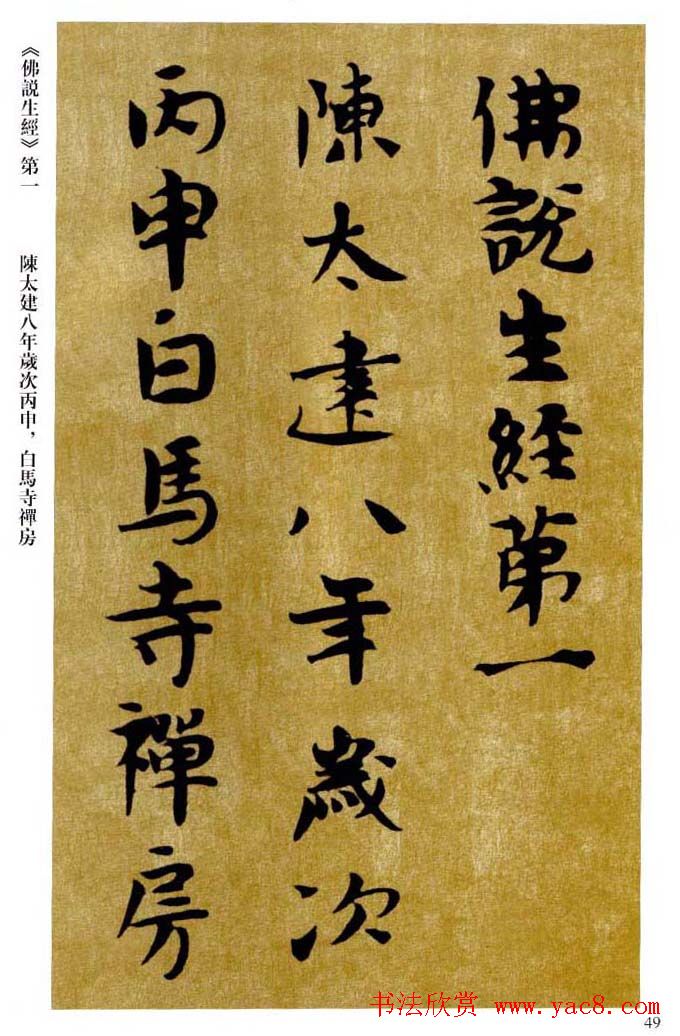 佛説生經第一
陳太建八年歲次
丙申白馬寺禪房
《佛説生經》第一　陳太建八年歲次丙申，白馬寺禪房
书法欣赏 www.yac8.com
49